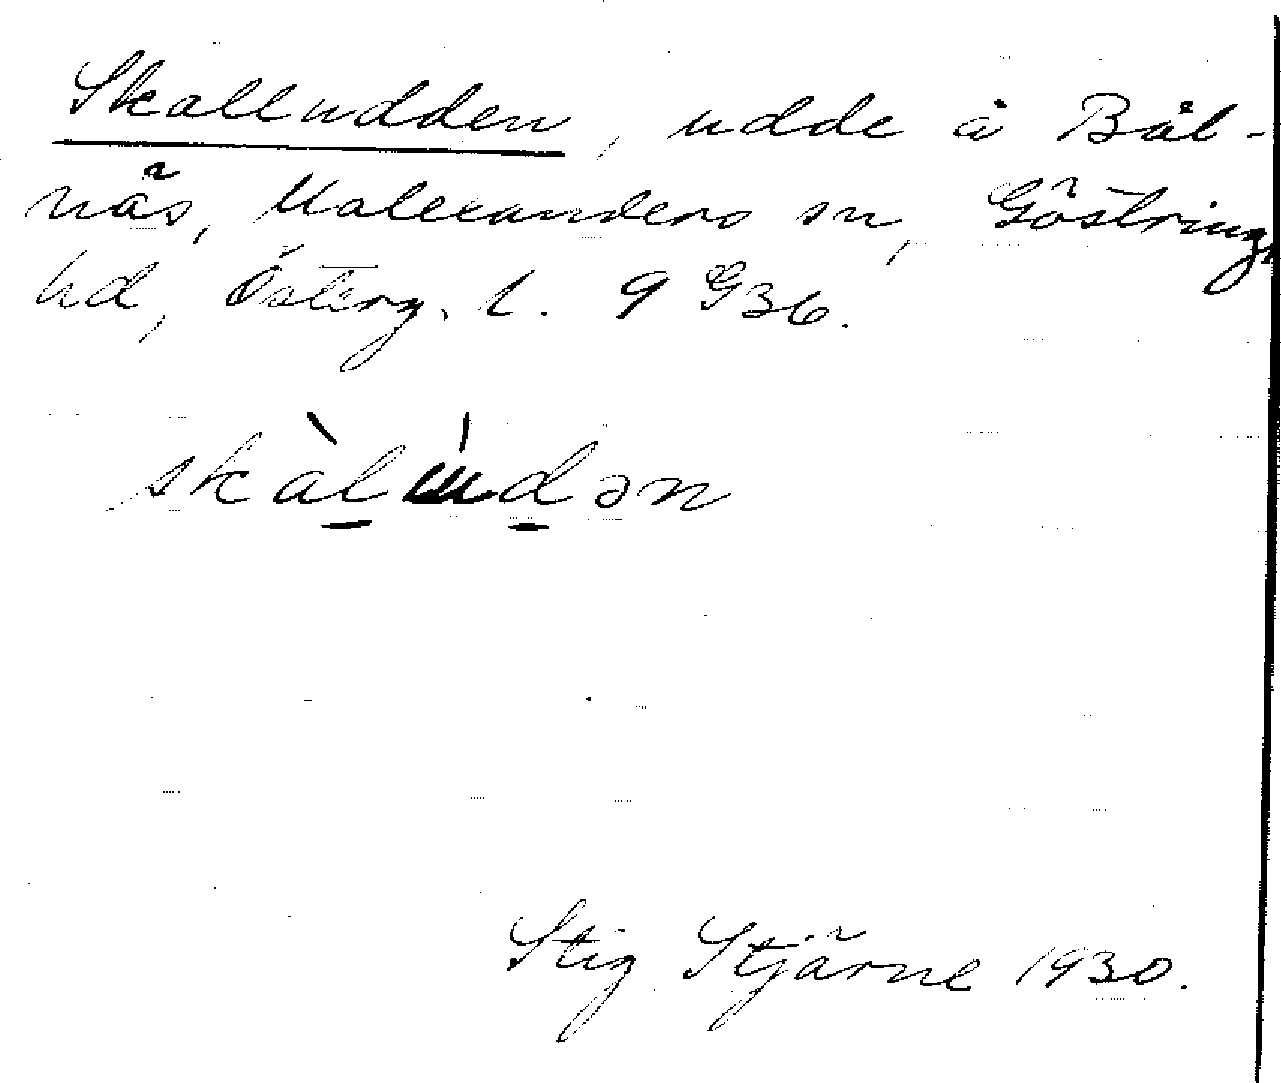 Skalludden, udde å Bål-
näs, Malexanders sn, Göstrings
hd, Österg. l. 9 G36.
skàlúdən
Stig Stjärne 1930.